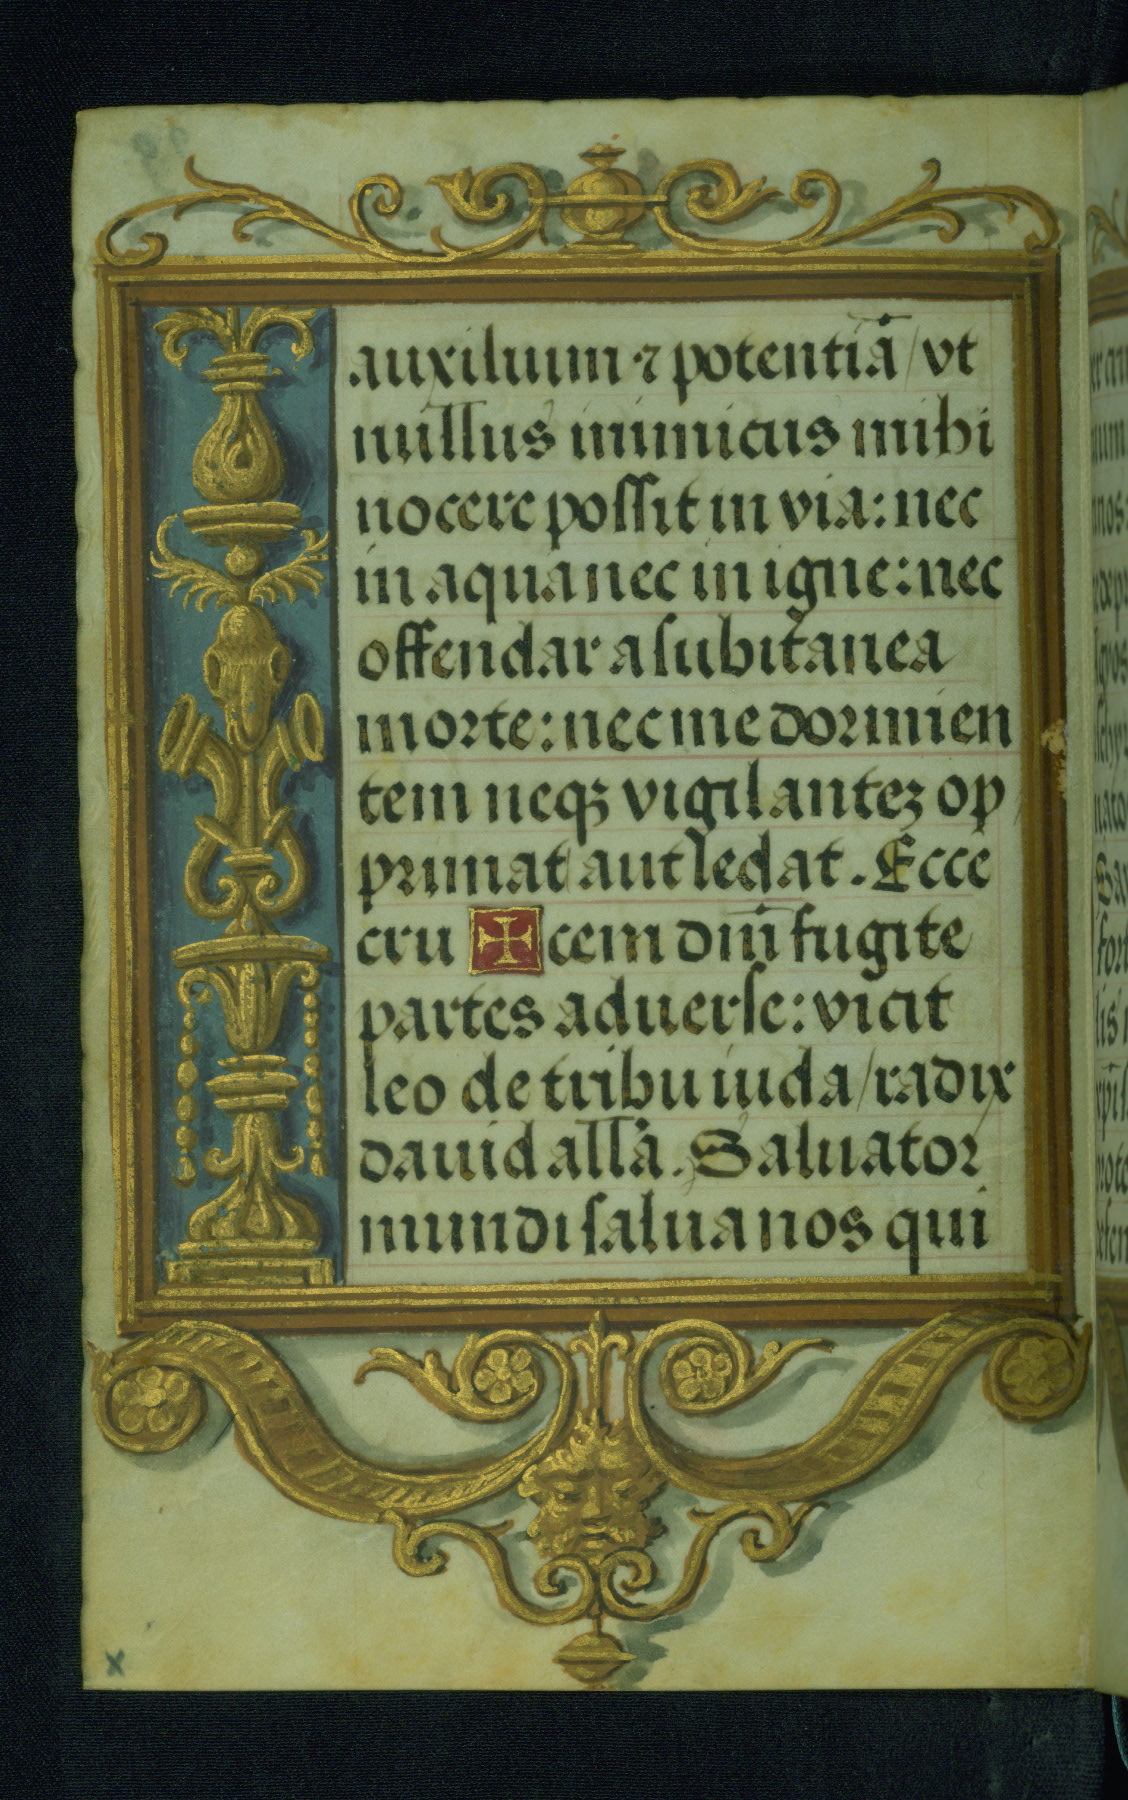 auxilium ⁊ potentiā / vt
nullus inimicus mihi
nocere possit in via: nec
in aqua nec in igne: nec
offendar a subitanea
morte: nec me dormien
tem neqꝫ vigilanteꝫ op
primat aut ledat. Ecce
cru ✠ cem dn̄i fugite
partes aduerse: vicit
leo de tribu iuda / radix
dauid alla̅. Saluator
mundi salua nos qui
x